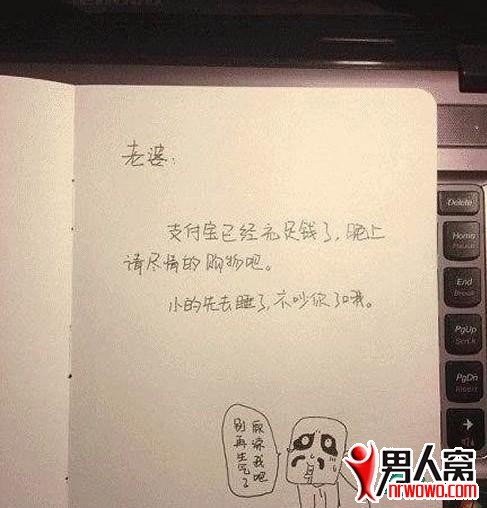 老婆：
支付宝已经充足钱了，晚上
请尽情的购物吧。
小的先去睡了，不吵你了哦。
原谅我吧
别再生气了
Delete
Home
End
Break
PgUp
ScrLk
PgDn
男人窝
nrwowo.com